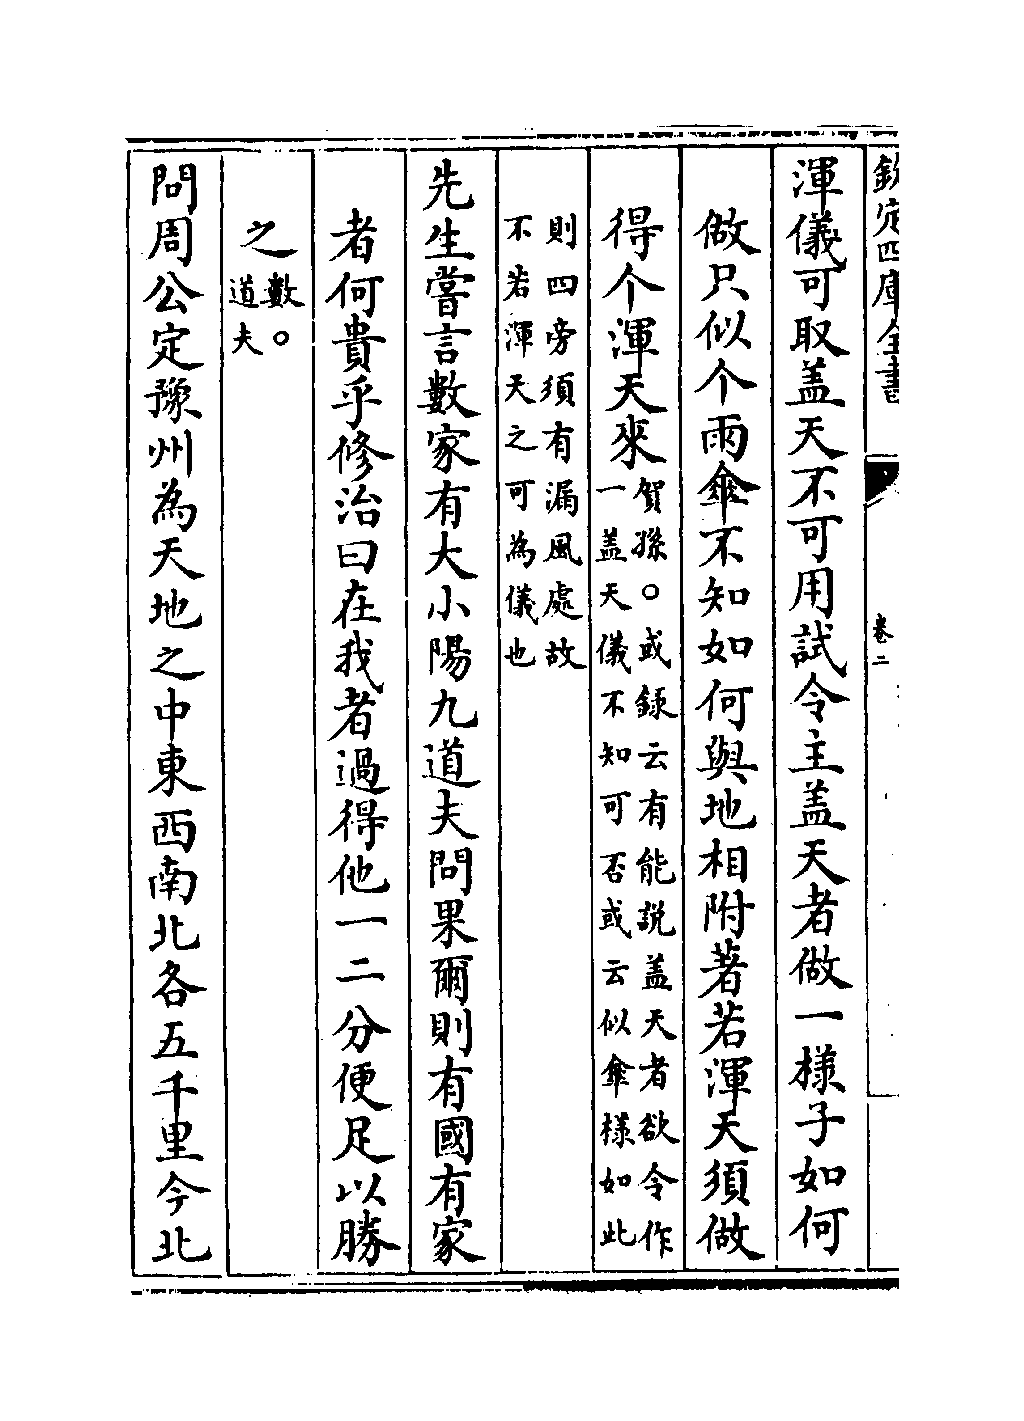 欽定四庫全書
卷二
渾儀可取盖天不可用試令主盖天者做一様子如何
做只似个雨傘不知如何與地相附著若渾天須做
得个渾天來
賀孫○或録云有能説盖天者欲令作
一盖天儀不知可否或云似傘様如此
則四旁須有漏風處故
不若渾天之可為儀也
先生嘗言數家有大小陽九道夫問果爾則有國有家
者何貴乎修治曰在我者過得他一二分便足以勝
之
數。
道夫
問周公定豫州為天地之中東西南北各五千里今北